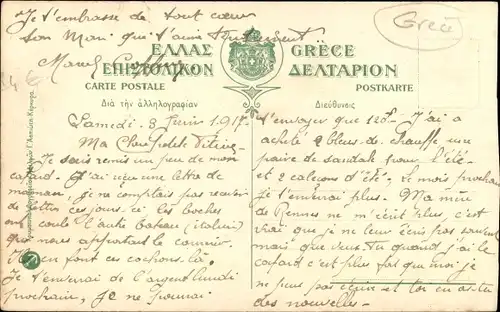 Je t'embrasse de tout coeur
Son Mari qui t'aime
Marcel
Grèce
ΕΛΛΑΣ GRÈCE
ΕΠΙΣΤΟΛΙΚΟΝ ΔΕΛΤΑΡΙΟΝ
CARTE POSTALE POSTKARTE
Διὰ τὴν ἀλληλογραφίαν Διεύθυνσις
Samedi 3 Juin 1917
Ma Chère petite
Je suis remis un peu de mon
cafard. J'ai reçu une lettre de
maman, je ne comptais pas recevoir
de lettre ces jours ici les boches
ont coulé l'autre bateau (italien)
qui nous apportait le courrier.
en font ces cochons là.
Je t'enverrai de l'argent lundi
prochain, je ne pourrai
t'envoyer que 120f. J'ai
acheté 2 bleus de chauffe une
paire de sandales pour l'été
et 2 caleçons d'été. Le mois prochain
je t'enverrai plus. Ma mère
de Rennes ne m'écrit plus, c'est
vrai que je ne leur écris pas souvent
mais que veux-tu quand j'ai le
cafard c'est plus fort que moi je
ne peux pas écrire et toi tu as
des nouvelles.